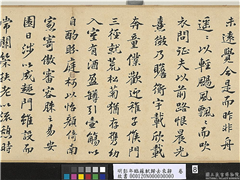 未遠覺今是而昨非舟
遙〻以輕颺風飄〻而吹
衣問征夫以前路恨晨光
熹微乃瞻衡宇載欣載
奔童僕歡迎稚子候門
三徑就荒松菊猶存攜幼
入室有酒盈罇引壺觴以
自酌眄庭柯以怡顏倚南
窗寄傲審容膝之易安
園日涉以成趣門雖設而
常關策扶老以流憩時
歸去來辭 卷
故書